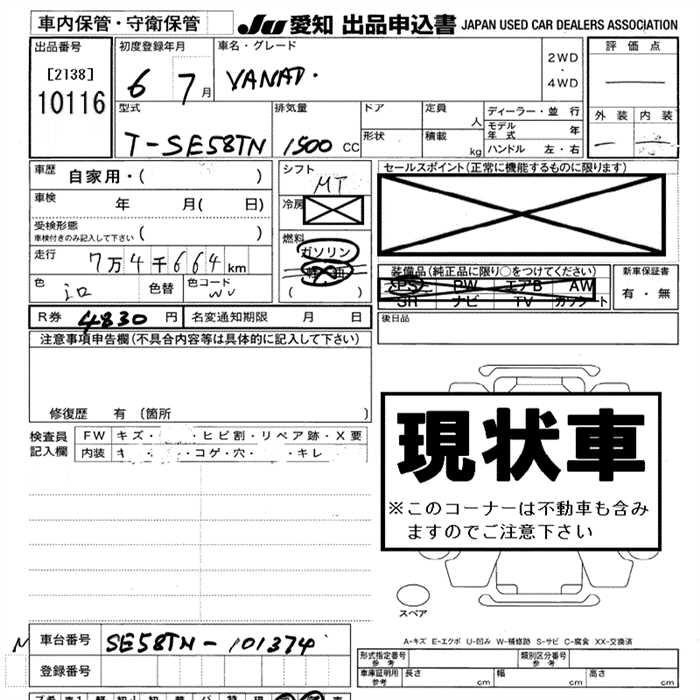 車内保管・守衛保管
JU 愛知 出品申込書 JAPAN USED CAR DEALERS ASSOCIATION
出品番号
[2138]
10116
初度登録年月
6 7月
車名・グレード
VANAD.
2WD
・
4WD
評価点
外装 内装
型式
T-SE58TN
排気量
1500 CC
ドア
定員
人
形状
積載
kg
ディーラー・並行
モデル年式 年
ハンドル 左・右
車歴 自家用・( )
車検 年 月( 日)
受検形態
車検付きのみ記入して下さい ( )
走行 7万4千664km
色
色替
色コード
シフト
MT
冷房
燃料
ガソリン
軽油
( )
セールスポイント(正常に機能するものに限ります)
装備品(純正品に限り○をつけてください)
PS PW エアB AW
SR ナビ TV カワシート
新車保証書
有・無
後日品
R券 4830 円
名変通知期限 月 日
注意事項申告欄(不具合内容等は具体的に記入して下さい)
修復歴 有 〔箇所 〕
検査員
記入欄
FW キズ・ ヒビ割・リペア跡・X要
内装 コゲ・穴・ キレ
現状車
※このコーナーは不動車も含み
ますのでご注意下さい
スペア
A-キズ E-エクボ U-凹み W-補修跡 S-サビ C-腐食 XX-交換済
車台番号 SE58TN-101374
登録番号
形式指定番号
参考
類別区分番号
参考
車庫証明用
参考
長さ cm 幅 cm 高さ cm